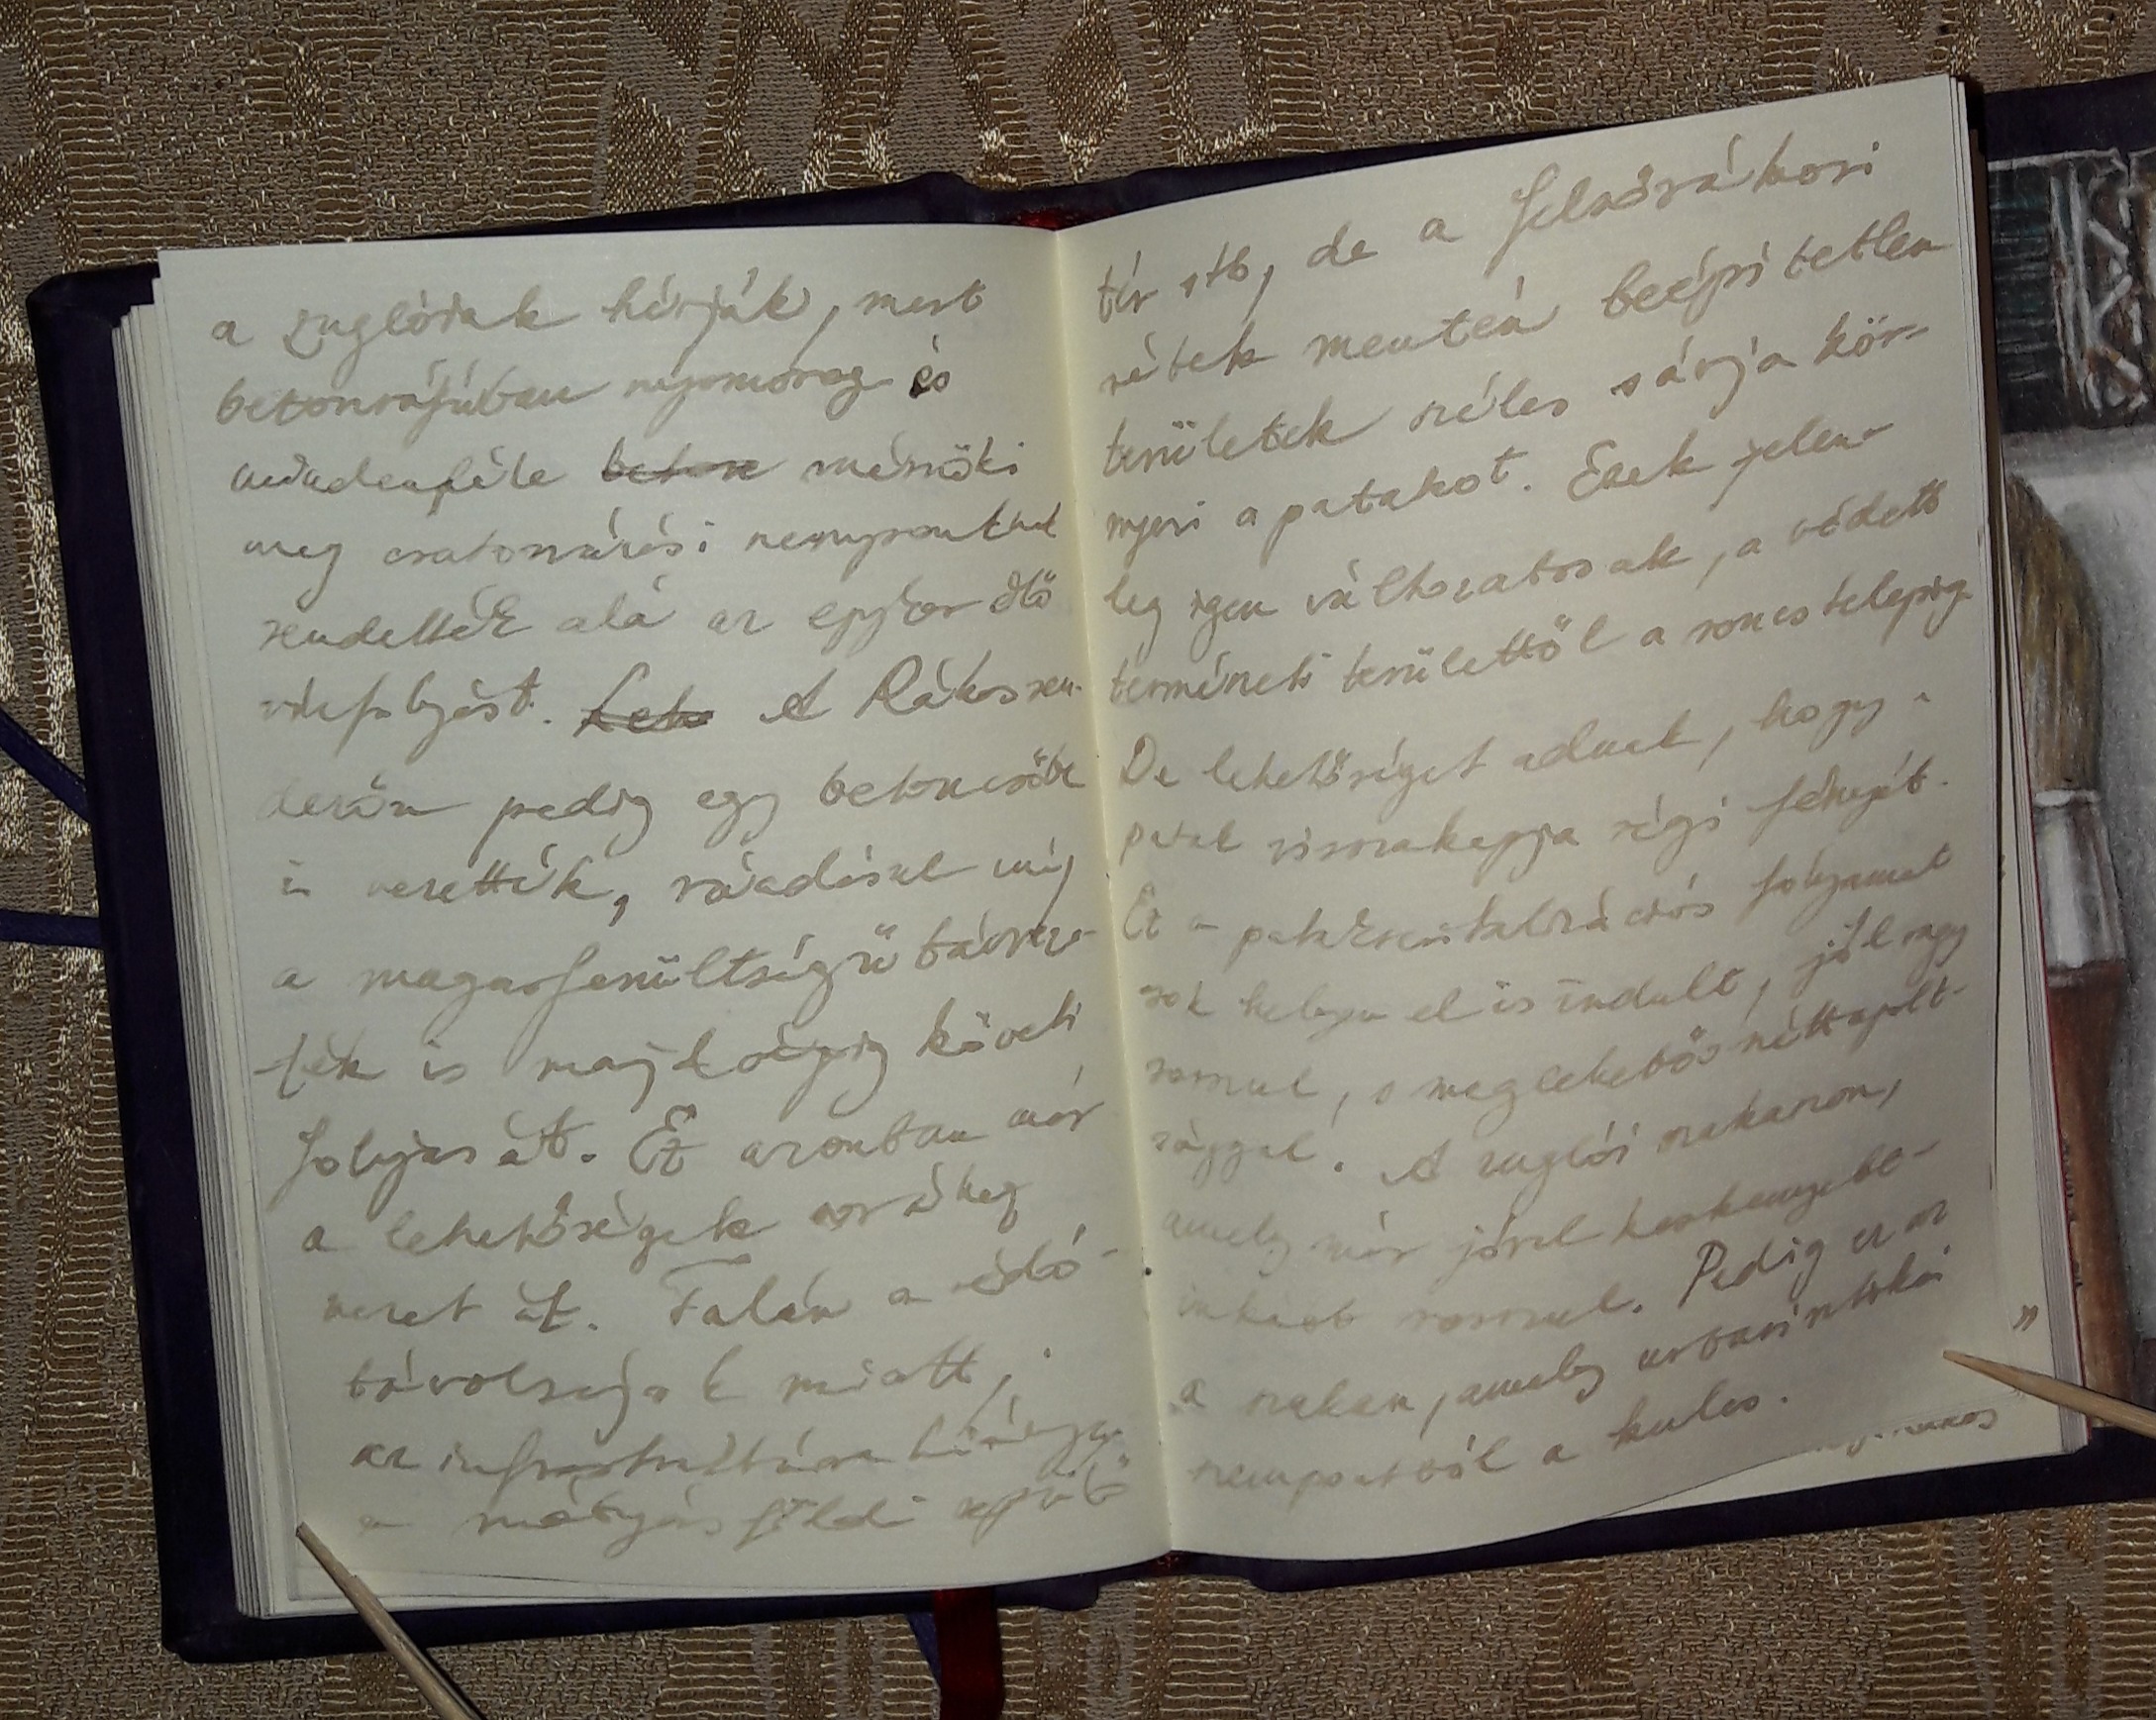 a zuglóiak hívják, mert
betonvályúban nyomorog és
mindenféle betone mérnöki
meg csatornázási szempontnak
rendelték alá az egykor élő
vízfolyást. Leh A Rákosren-
dezőn pedig egy betoncsőbe
is vezették, ráadásul még
a magasfeszültségű távveze-
ték is majd végig követi
folyását. Ez azonban már
a lehetőségek
vezet át. Talán a
távolságok miatt,
az infrastruktúra hiánya,
a mátyásföldi repülő
tér stb, de a felsőrákosi
rétek mentén beépítetlen
területek széles sávja kör-
nyezi a patakot. Ezek jelen-
leg igen változatosak, a védett
természeti területtől a roncstelepig.
De lehetőséget adnak, hogy a
patak visszakapja régi fényét.
Ez a patakrevitalizációs folyamat
sok helyen el is indult, jól vagy
rosszul, s meglehetős
sággal. A zuglói szakaszon,
amely már jóval keskenyebb
inkább rosszul. Pedig ez az
a szakasz, amely urbanisztikai
szempontból a kulcs.
"